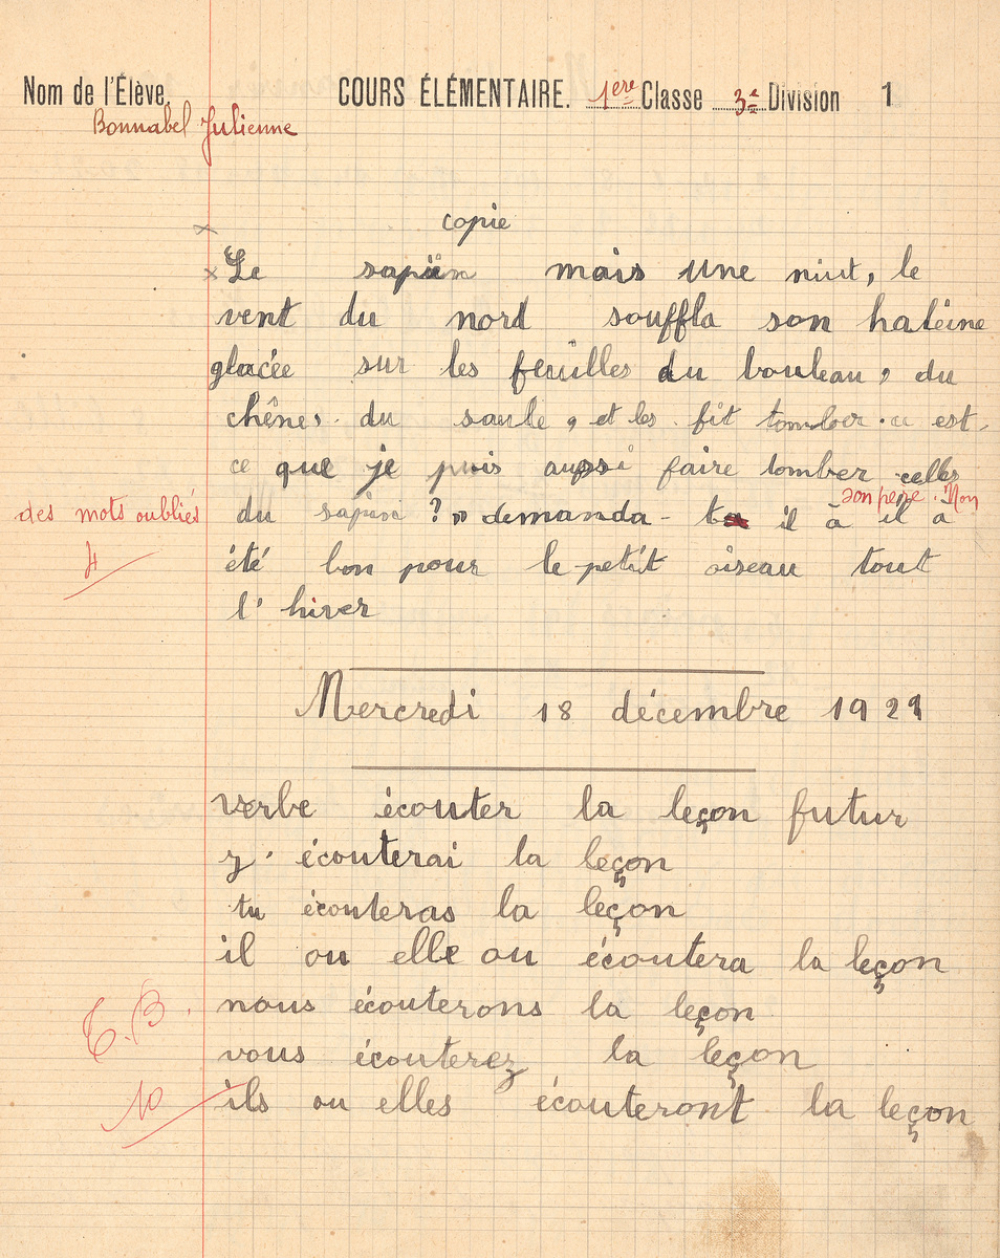 Nom de l'Élève, COURS ÉLÉMENTAIRE. 1ère Classe 3e Division 1
Bonnabel Julienne
copie
Le sapin mais une niut, le
vent du nord souffla son haleine
glacée sur les feuilles du bouleau, du
chêne, du saule, et les fit tomber. ce est-
ce que je puis aussi faire tomber celles
son père. Non
des mots oubliés du sapin ? » demanda - t il à il a
4 été bon pour le petit oiseau tout
l'hiver
Mercredi 18 décembre 1929
verbe écouter la leçon futur
j'écouterai la leçon
tu écouteras la leçon
il ou elle ou écoutera la leçon
nous écouterons la leçon
T.B.
vous écouterez la leçon
10 ils ou elles écouteront la leçon